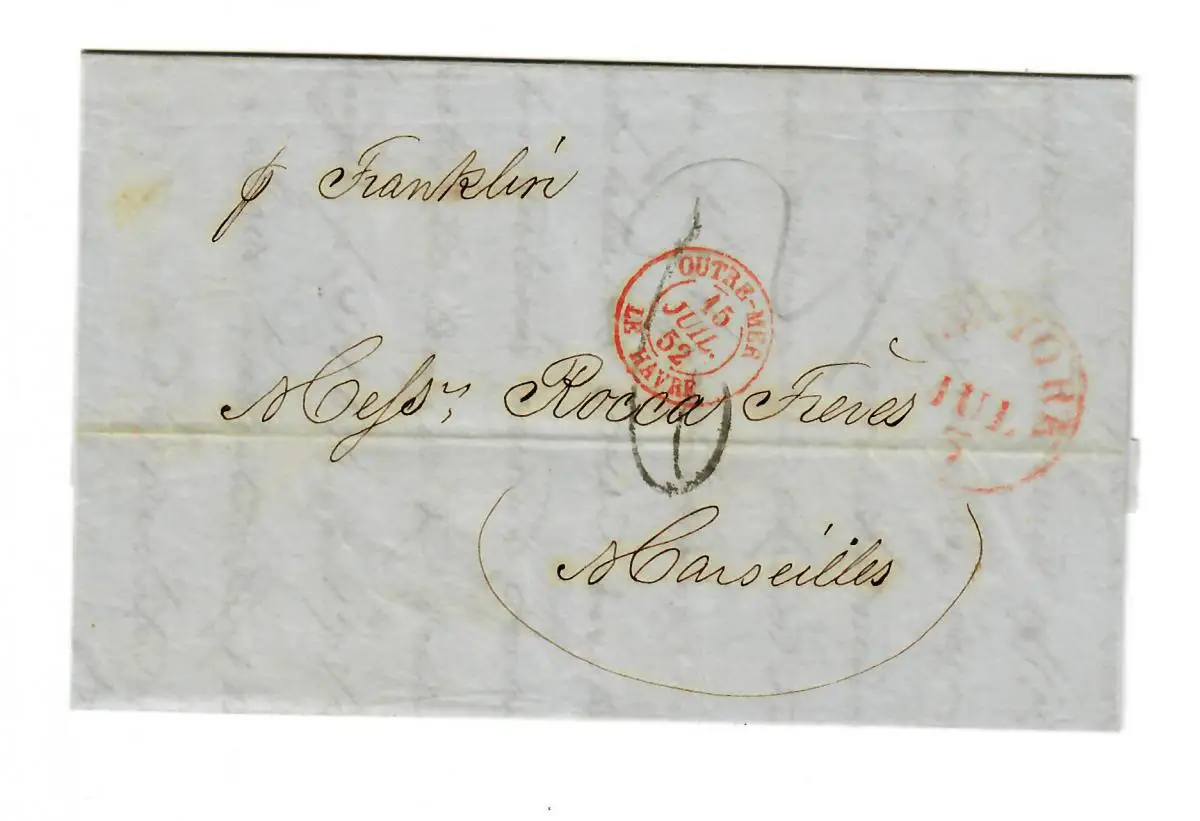 p Franklin
OUTRE-MER
15
JUIL.
52
LE HAVRE
Messrs, Rocca Frères
JUL
Marseilles